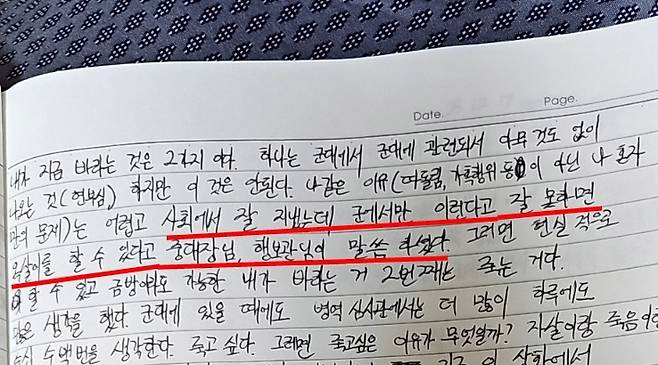 Date. Page.
내가 지금 바라는 것은 2가지 야. 하나는 군대에서 군대에 관련되서 아무 것도 없이
나오는 것(현부심) 하지만 이 것은 안된다. 나같은 이유(따돌림, 가혹행위 등이 아닌 나 혼자
만의 문제)는 어렵고 사회에서 잘 지냈는데 군에서만 이런다고 잘 못하면
옥살이를 할 수 있다고 중대장님, 행보관님이 말씀 하셨다. 그러면 현실 적으로
할 수 있고 금방이라도 가능한 내가 바라는 거 2번 째는 죽는 거다.
많은 생각을 했다. 군대에 있을 때에도 병역 심사관에서는 더 많이 하루에도
수백번을 생각한다. 죽고 싶다. 그러면 죽고싶은 이유가 무엇일까? 자살이랑 죽음
상황에서